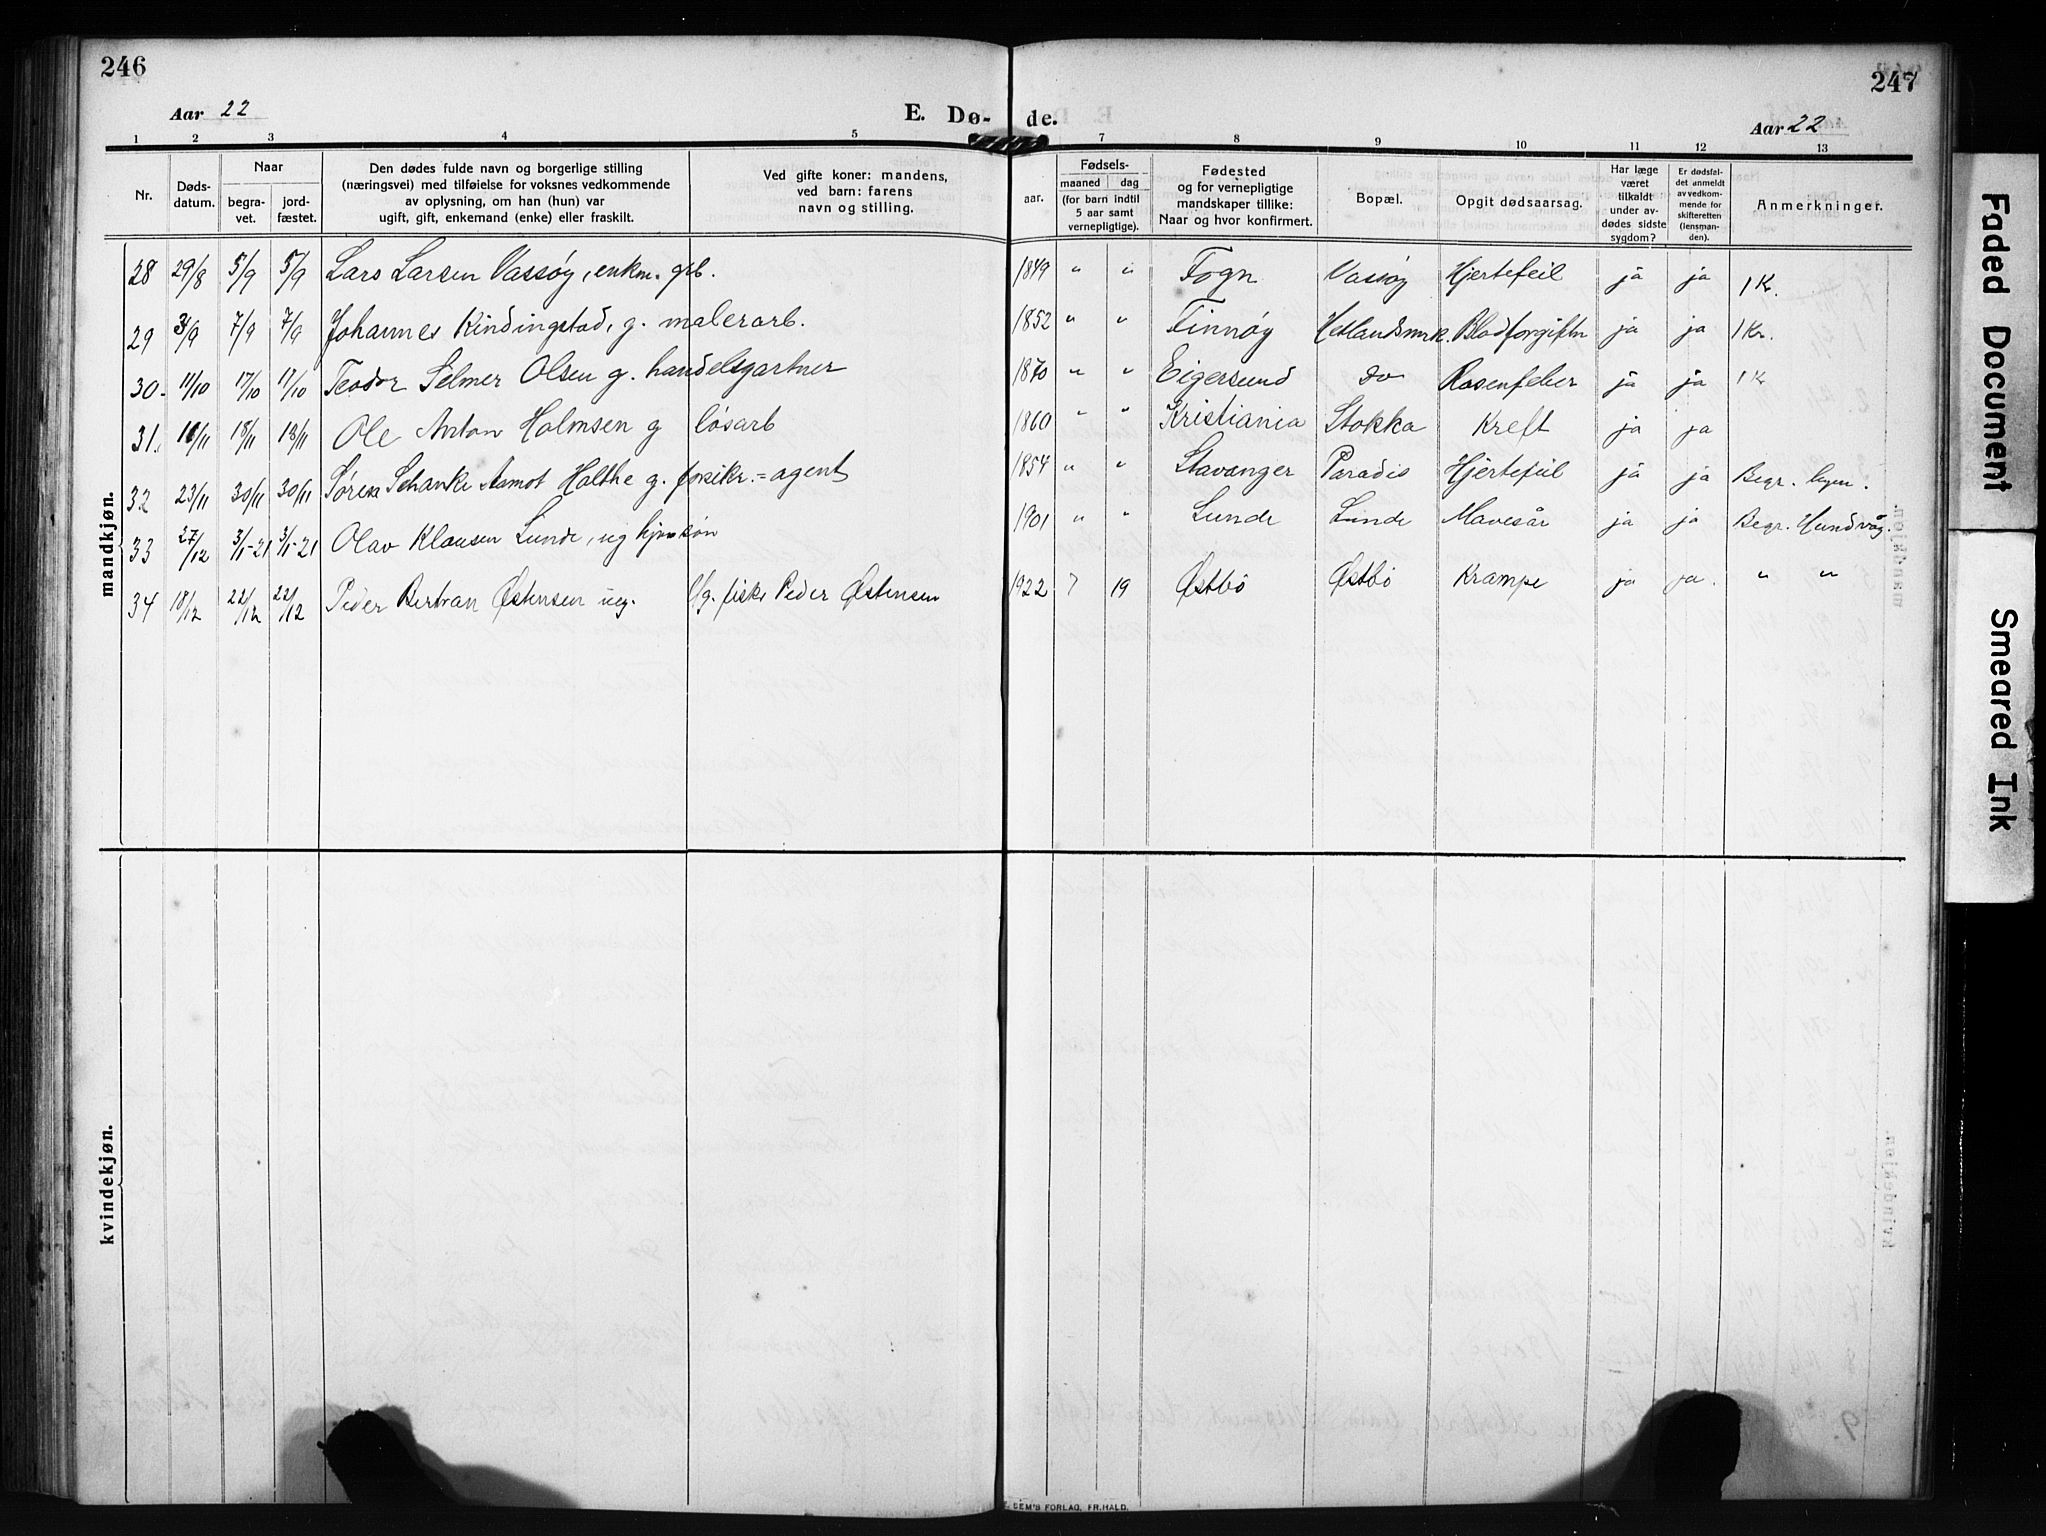 246
247
Aar 22
E. Dø-
de.
Aar 22
1 2 3 4 5 7 8 9 10 11 12 13
Nr.
Døds-
datum.
Naar
begra-
vet.
jord-
fæstet.
Den dødes fulde navn og borgerlige stilling
(næringsvei) med tilføielse for voksnes vedkommende
av oplysning, om han (hun) var
ugift, gift, enkemand (enke) eller fraskilt.
Ved gifte koner: mandens,
ved barn: farens
navn og stilling.
Fødsels-
aar.
maaned
dag
(for barn indtil
5 aar samt
vernepligtige).
Fødested
og for vernepligtige
mandskaper tillike:
Naar og hvor konfirmert.
Bopæl.
Opgit dødsaarsag.
Har læge
været
tilkaldt
under av-
dødes sidste
sygdom?
Er dødsfal-
det anmeldt
av vedkom-
mende for
skifteretten
(lensman-
den).
Anmerkninger.
mandkjøn.
28 29/8 5/9 5/9 Lars Larsen Vassøy, enkm. grb. 1849 " " Fogn Vassøy Hjertefeil ja ja 1 Kr.
29 3/9 7/9 7/9 Johannes Kindingstad, g. malerarb. 1852 " " Finnøy Hetlandsmrk. Blodforgiftn ja ja 1 Kr.
30. 11/10 17/10 17/10 Teodor Selmer Olsen g. handelsgartner 1870 " " Eigersund do Rosenfeber ja ja 1 K
31. 11/11 18/11 18/11 Ole Anton Holmsen g løsarb 1860 " " Kristiania Stokka Kreft ja ja
32 23/11 30/11 30/11 Søren Schanke Aamot Halthe g. forsikr.= agent 1854 " " Stavanger Paradis Hjertefeil ja ja Begr. byen.
33 27/12 3/1-21 3/1-21 Olav Klausen Lunde, ug 1901 " " Lunde Lunde Mavesår ja ja Begr. Hundvåg.
34 18/12 22/12 22/12 Peder Bertran Østensen ug. Ug. fisk. Peder Østensen 1922 7 19 Østbø Østbø Krampe ja ja. " "
kvindekjøn.
SEM'S FORLAG, FR.HALD.
Faded Document
Smeared Ink